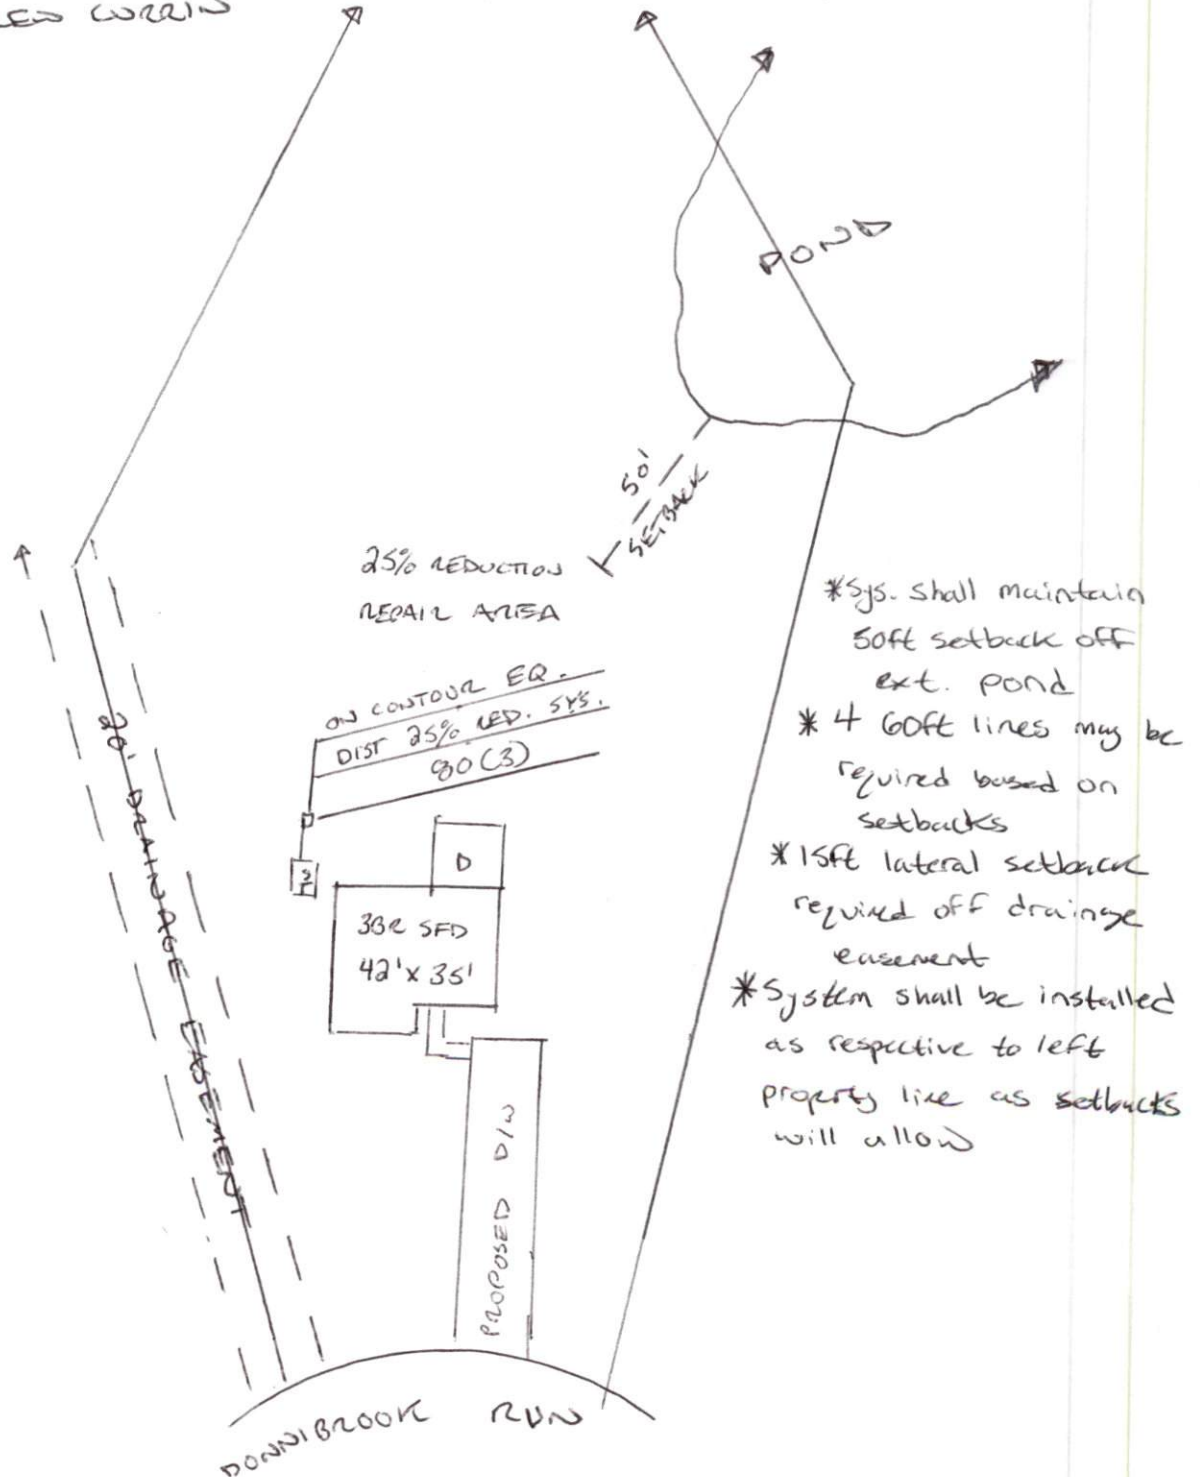 CURRIN
POND
50'
SETBACK
25% REDUCTION
REPAIR AREA
ON CONTOUR EQ.
DIST 25% RED. SYS.
80 (3)
ST
D
3BR SFD
42' x 35'
20' DRAINAGE EASEMENT
PROPOSED D/W
DONNIBROOK RUN
*Sys. shall maintain
50ft setback off
ext. pond
* 4 60ft lines may be
required based on
setbacks
* 15ft lateral setback
required off drainage
easement
*System shall be installed
as respective to left
property line as setbacks
will allow